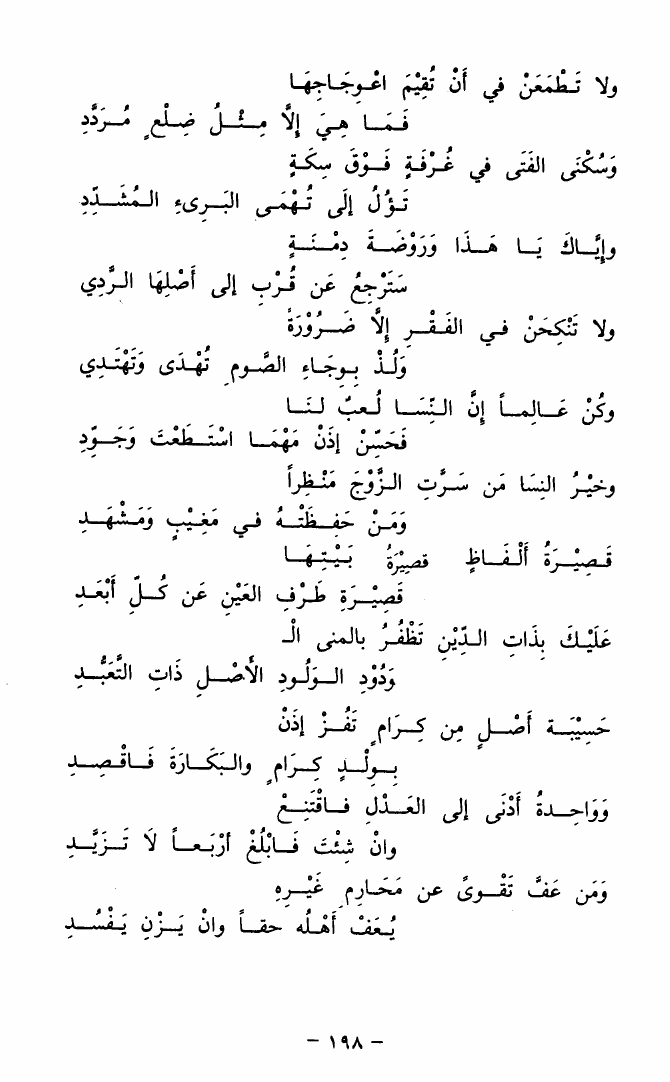 ولا تَطْمَعَنْ في أَنْ تُقِيْمَ اعْوِجَاجِهَا
فَمَا هِيَ إِلَّا مِثْلُ ضِلْعٍ مُرَدَّدِ
وَسُكْنَى الفَتَى في غُرْفَةٍ فَوْقَ سِكَةٍ
تَؤُلُ إِلَى تُهْمَى البَرِىءِ المُشَدِّدِ
وإِيَّاكَ يَا هَذَا وَرَوْضَةَ دِمْنَةٍ
سَتَرْجِعُ عَن قُرْبٍ إلى أَصْلِهَا الرَّدِي
ولا تَنْكِحَنْ في الفَقْرِ إلَّا ضَرُوْرَةً
وَلُذْ بِوِجَاءِ الصَّومِ تُهْدَى وَتَهْتَدِي
وكُنْ عَالِماً إِنَّ النِّسَا لُعبٌ لَنَا
فَحَسِّنْ إذَنْ مَهْمَا اسْتَطَعْتَ وَجَوِّدِ
وخيْرُ النِسَا مَن سَرَّتِ الزَّوْجَ مَنْظِراً
وَمَنْ حَفِظَتْهُ في مَغِيْبٍ وَمَشْهَدِ
قَصِيْرَةُ أَلْفَاظٍ قصِيْرَةُ بَيْتِهَا
قَصِيْرَةِ طَرْفِ العَيْنِ عَن كُلِّ أَبْعَدِ
عَلَيْكَ بِذَاتِ الدِّيْنِ تَظْفَرُ بالمنى الـ
وَدُوْدِ الوَلُودِ الأَصْلِ ذَاتِ التَّعَبُّدِ
حَسِيْبَةِ أصْلٍ مِن كِرَامٍ تَفُزْ إذَنْ
بِوِلْدٍ كِرَامٍ والبَكَارَةَ فَاقْصِدِ
وَوَاحِدةُ أدْنَى إلى العَدْلِ فاقْتَنِعْ
وانْ شِئْتَ فَابْلُغْ أرْبَعاً لاَ تَزَيَّدِ
وَمَن عَفَّ تَقْوىً عن مَحَارِمِ غَيْرِهِ
يُعَفْ أهْلُه حقاً وانْ يَزْنِ يَفْسُدِ
- ١٩٨ -